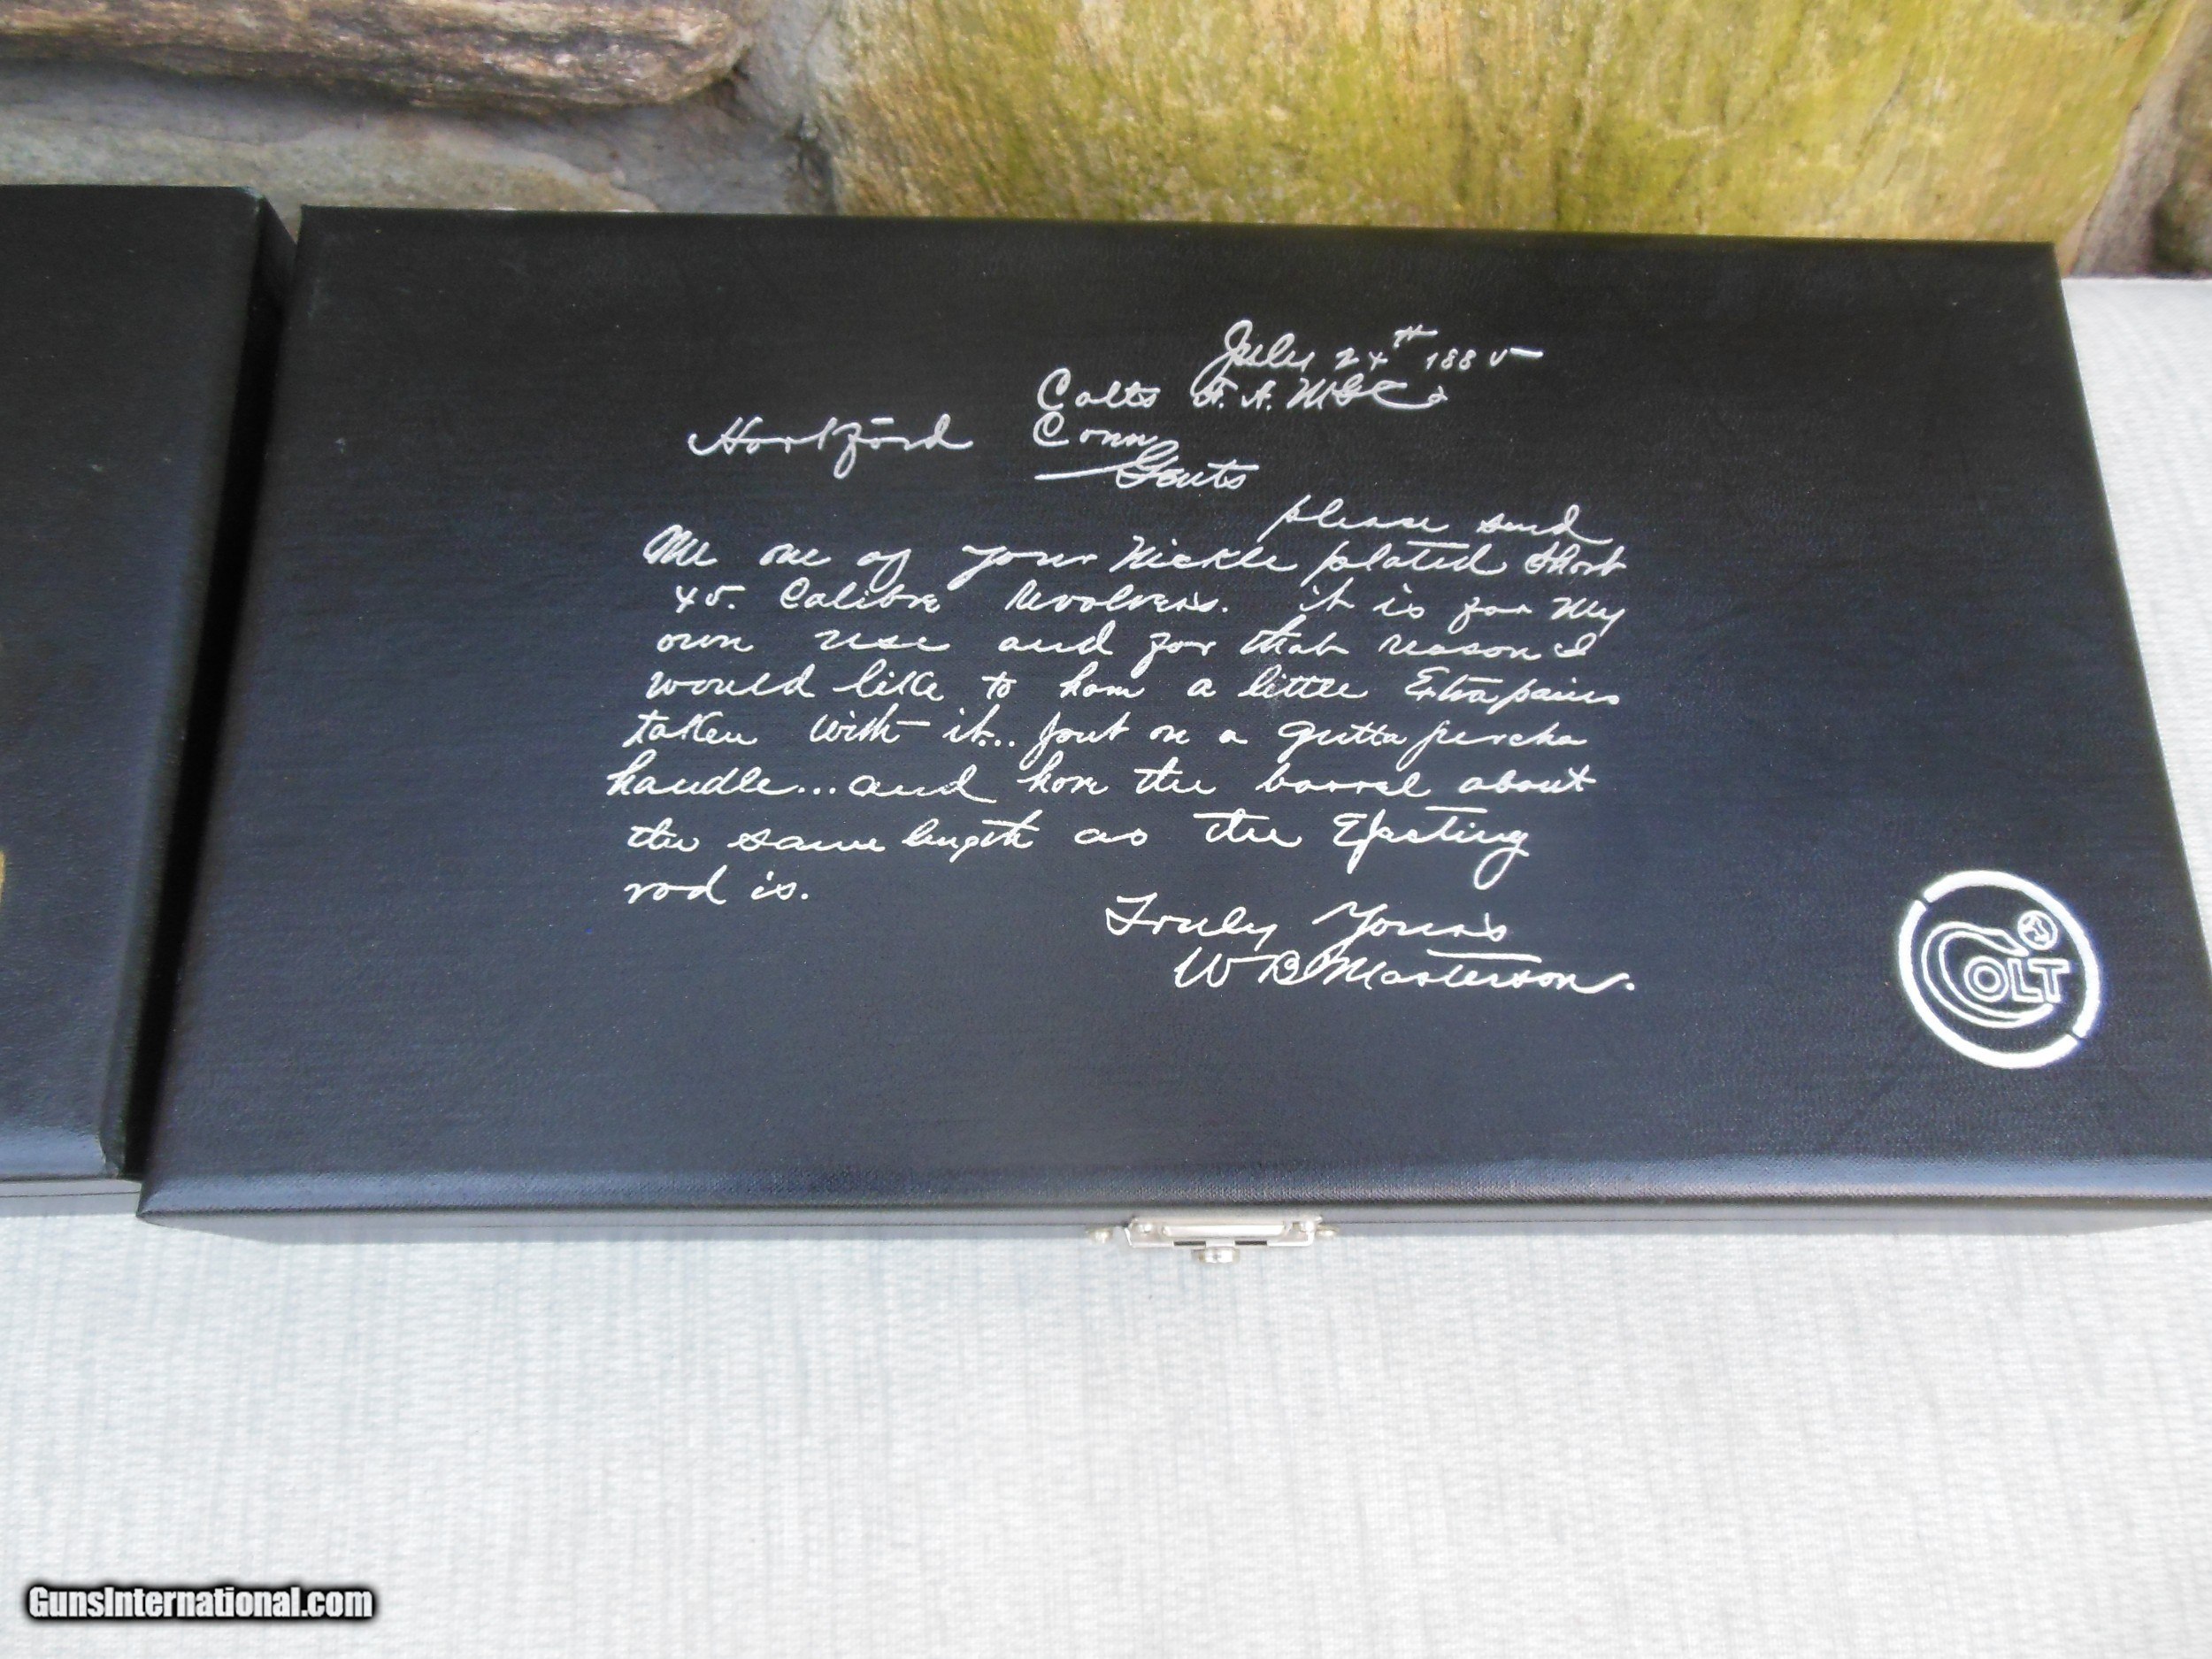 July 24th 1885
Colts F. A. M'f'g Co
Hartford Conn
Gents
please send
Me one of your Nickle plated short
45. Calibre Revolvers. it is for my
own use and for that reason I
would like to have a little Extra pains
taken with it... put on a gutta percha
handle... and have the barrel about
the same length as the Ejecting
rod is.
Truly Yours
W B Masterson.
COLT
GunsInternational.com